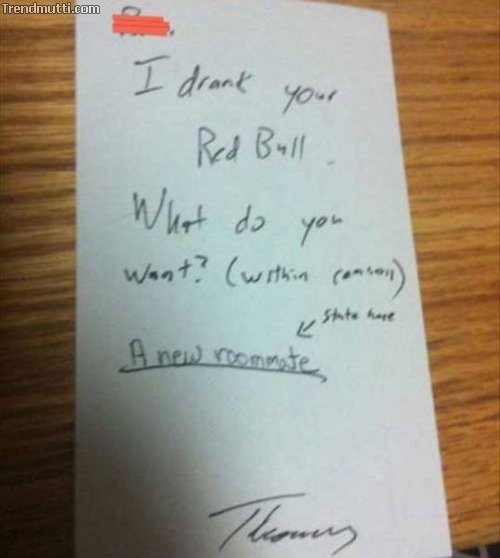 Trendmutti.com
I drank your
Red Bull.
What do you
want? (within reason)
State here
A new roommate
Thomas